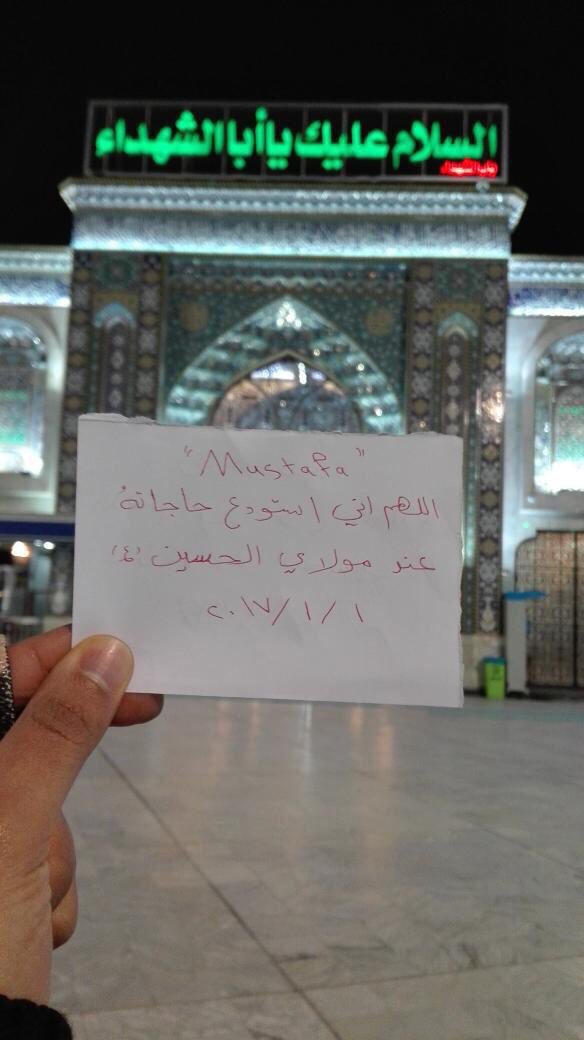 السلام عليك يا أبا الشهداء
"Mustafa"
اللهم اني استودع حاجاتهُ
عند مولاي الحسين (ع)
٢٠١٧/١/١